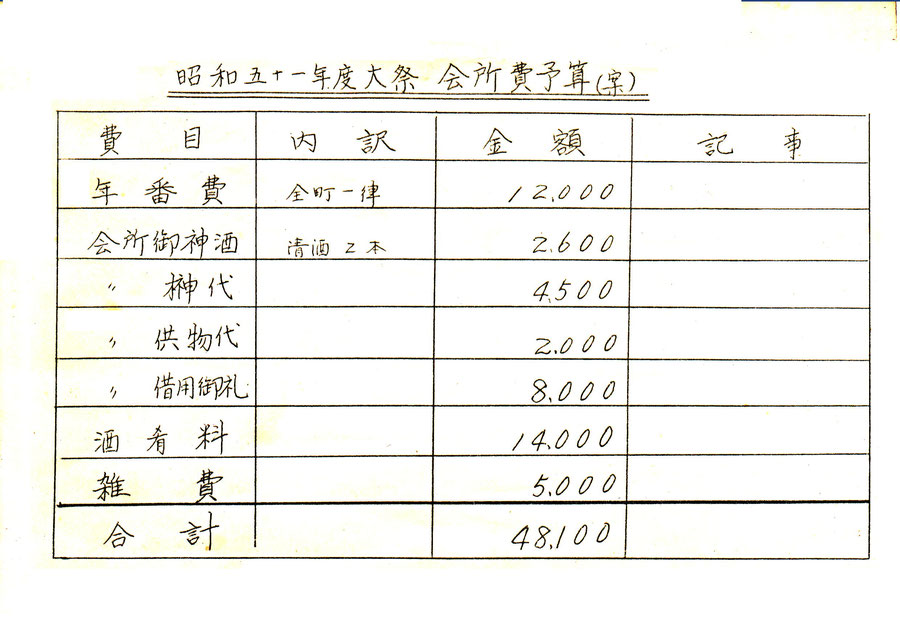 昭和五十一年度大祭 会所費予算(案)
費目 内訳 金額 記事
年番費 全町一律 12,000
会所御神酒 清酒2本 2,600
〃 榊代 4,500
〃 供物代 2,000
〃 借用御礼 8,000
酒肴料 14,000
雑費 5,000
合計 48,100